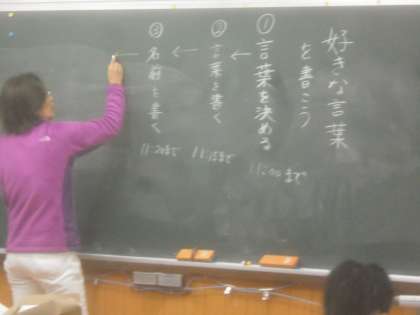 好きな言葉
を書こう
①
言葉を決める
11:00まで
←
②
言葉を書く
11:15まで
←
③
名前を書く
11:20まで
←